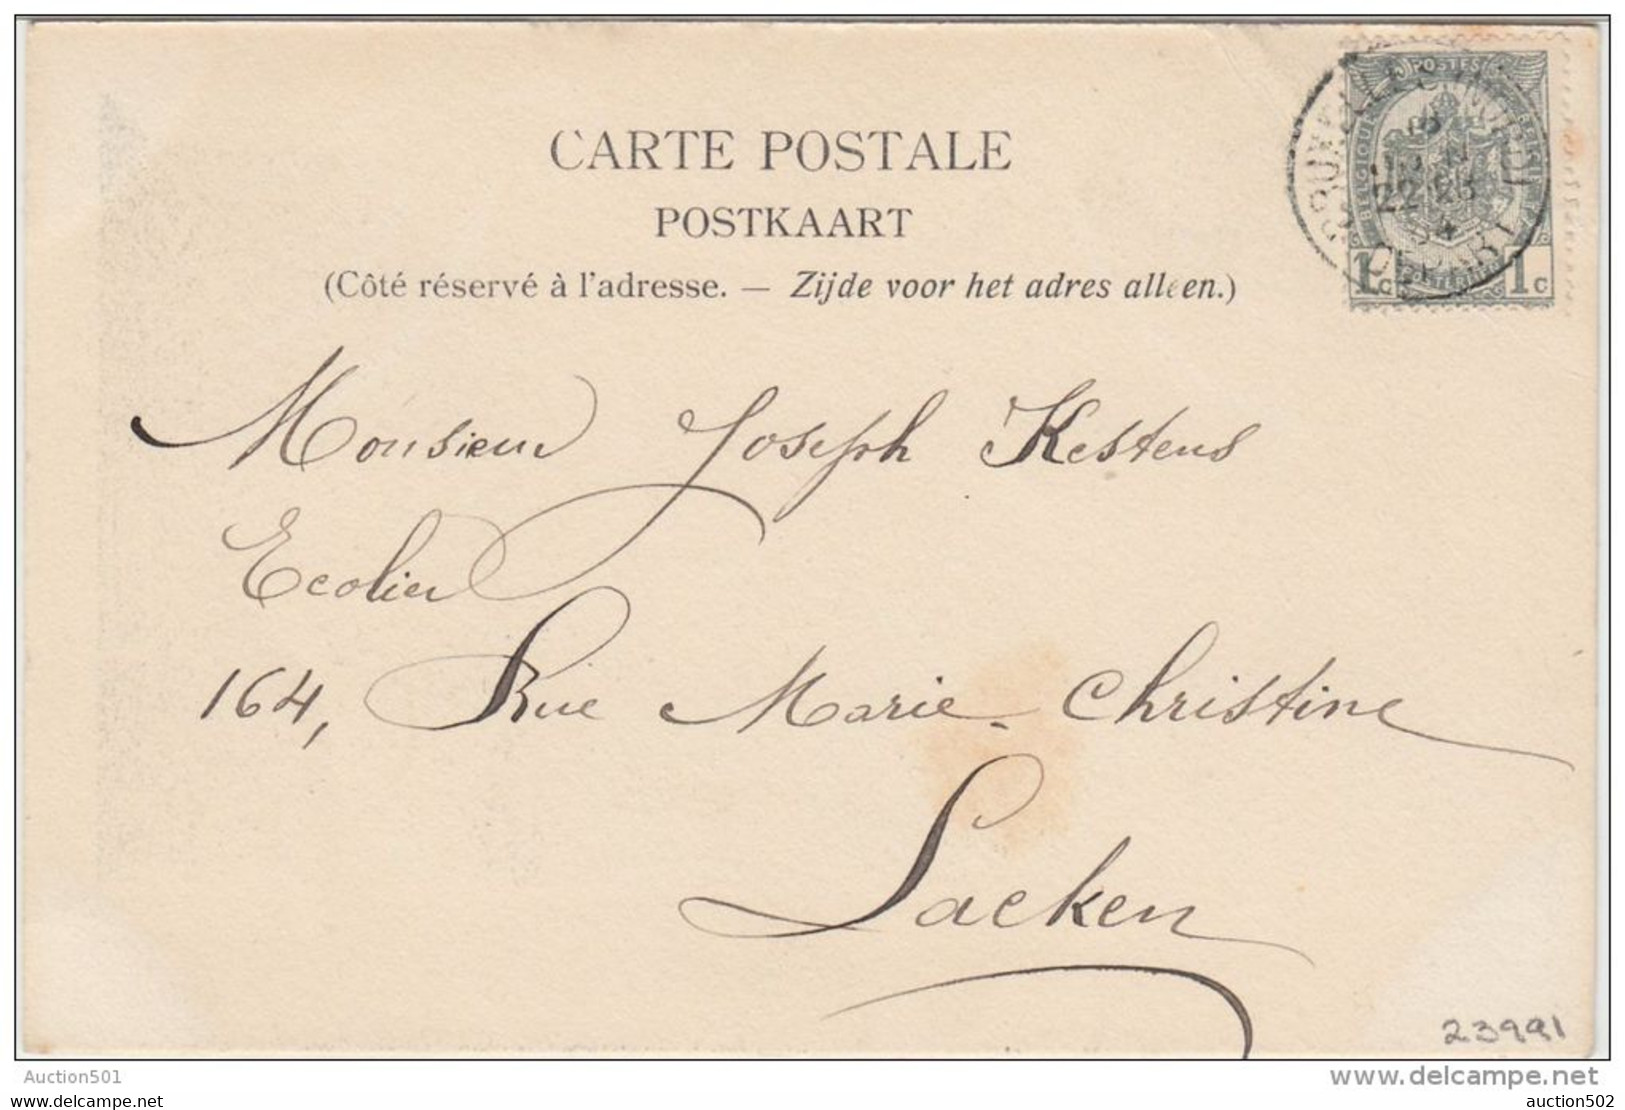 CARTE POSTALE
POSTKAART
(Côté réservé à l'adresse. — Zijde voor het adres alleen.)
POSTES
BELGIQUE
1c 1c
Monsieur Joseph Kestens
Ecolier
164, Rue Marie-Christine
Laeken
23991
Auction501
www.delcampe.net
auction502